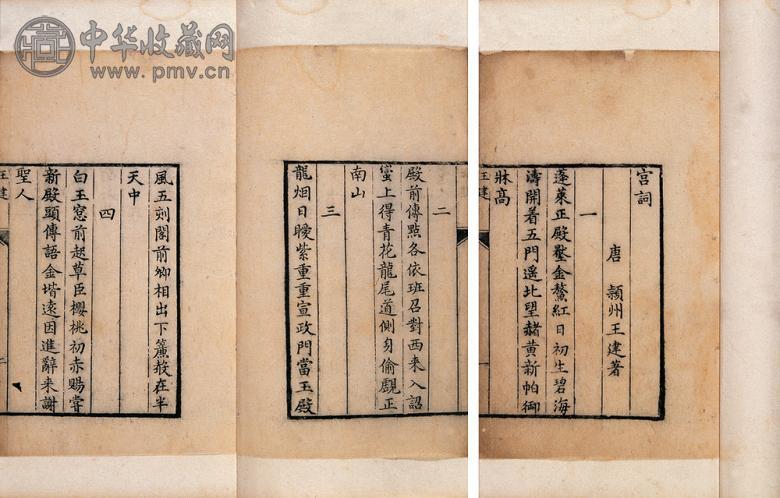 中华收藏网
www.pmv.cn
宫詞
唐 潁州王建著
一
蓬萊正殿壓金鰲紅日初生碧海
濤開着五門遥北望赭黄新帕御
牀高
王建
二
殿前傳㸃各依班召對西来入詔
蠻上得青花龍尾道側身偷覷正
南山
三
龍烟日暖紫重重宣政門當玉殿
風五刻閣前卿相出下簾𣪠在半
天中
四
白玉窓前起草臣櫻桃初赤賜甞
新殿頭傳語金堦逺因進辭来謝
聖人
王建